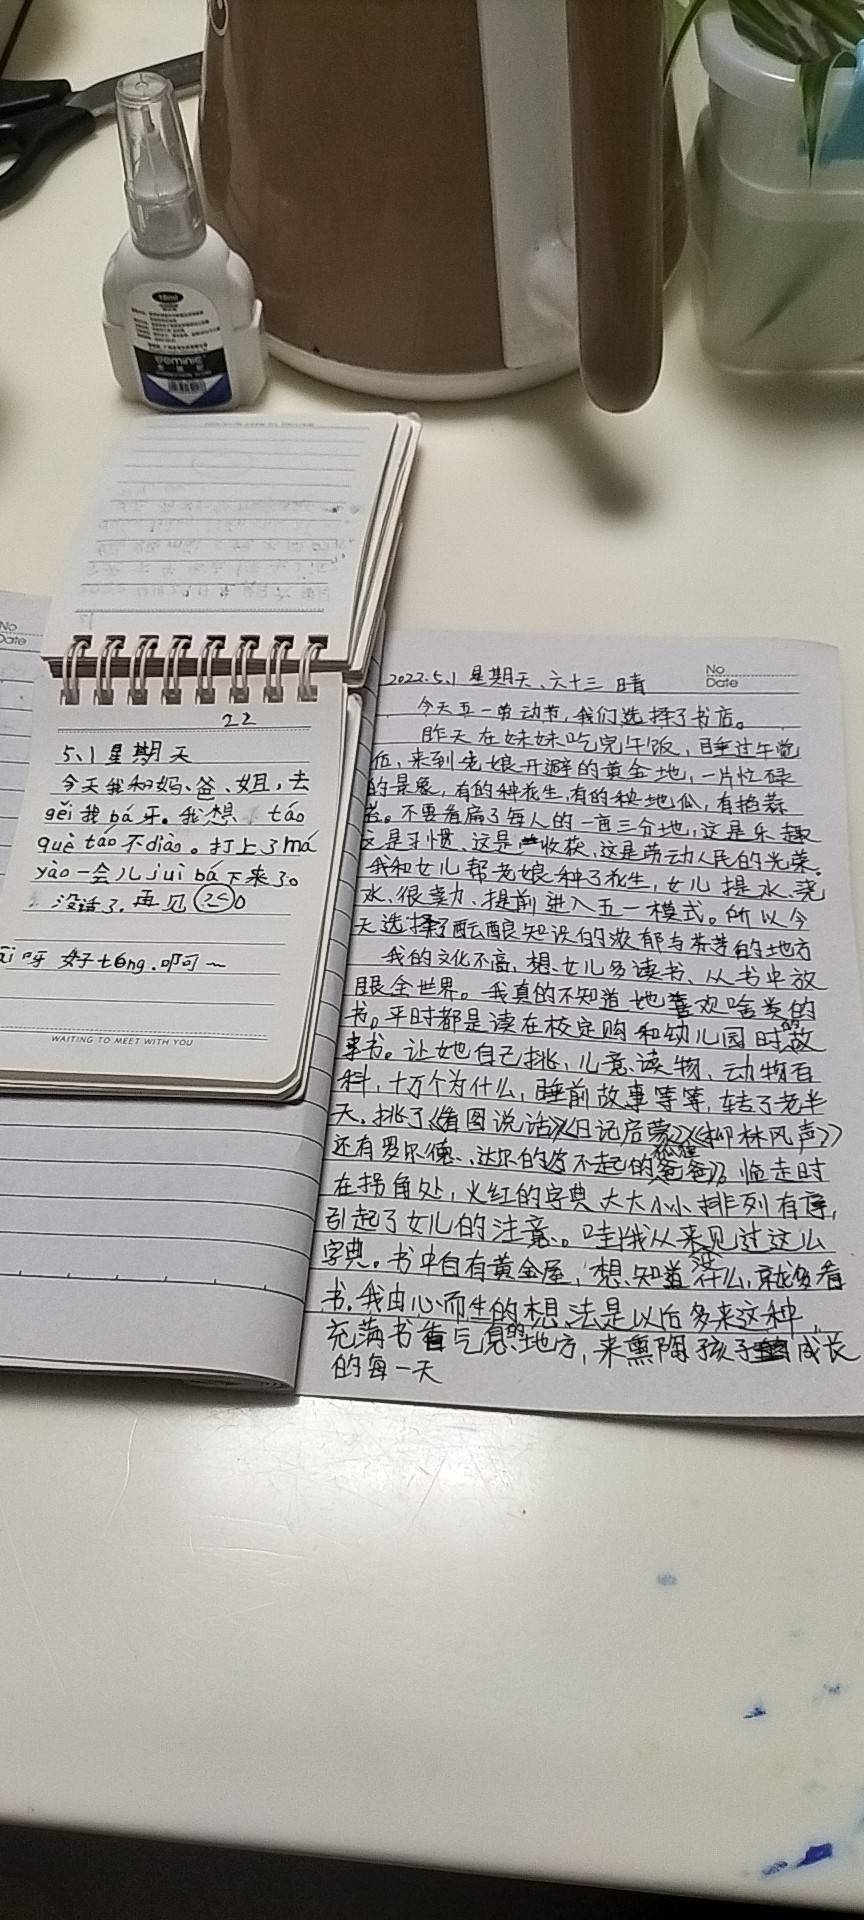 22
5、1 星期天
今天我和妈、爸、姐,去
gěi我bá牙。我想 táo
què táo不diào。打上了má
yào一会儿jiù bá下来了。
没话了,再见
呀 好téng.啊~
WAITING TO MEET WITH YOU
No
Date
No
Date
2022.5.1 星期天、六十三 晴
今天五一劳动节,我们选择了书店。
昨天在妹妹吃完午饭,睡过午觉
后,来到老娘开辟的黄金地,一片忙碌
的景象,有的种花生,有的秧地瓜,有拾蒜
苔。不要看扁了每人的一亩三分地,这是乐趣
这是习惯、这是收获、这是劳动人民的光荣。
我和女儿帮老娘种了花生,女儿提水、浇
水、很卖力、提前进入五一模式。所以今
天选择了酝酿知识的浓郁与芬芳的地方
我的文化不高,想女儿多读书、从书中放
眼全世界。我真的不知道她喜欢啥类的
书。平时都是读在校定购和幼儿园时的故
事书。让她自己挑,儿童读物、动物百
科,十万个为什么,睡前故事等等,转了老半
天,挑了《看图说话》《日记启蒙》《柳林风声》
还有罗尔德、达尔的《了不起的狐狸爸爸》。临走时
在拐角处,火红的字典大大小小排列有序,
引起了女儿的注意。哇!我从来没见过这么
字典。书中自有黄金屋,想知道什么,就多看
书,我由心而生的想法是以后多来这种
充满书香气息的地方,来熏陶孩子成长
的每一天